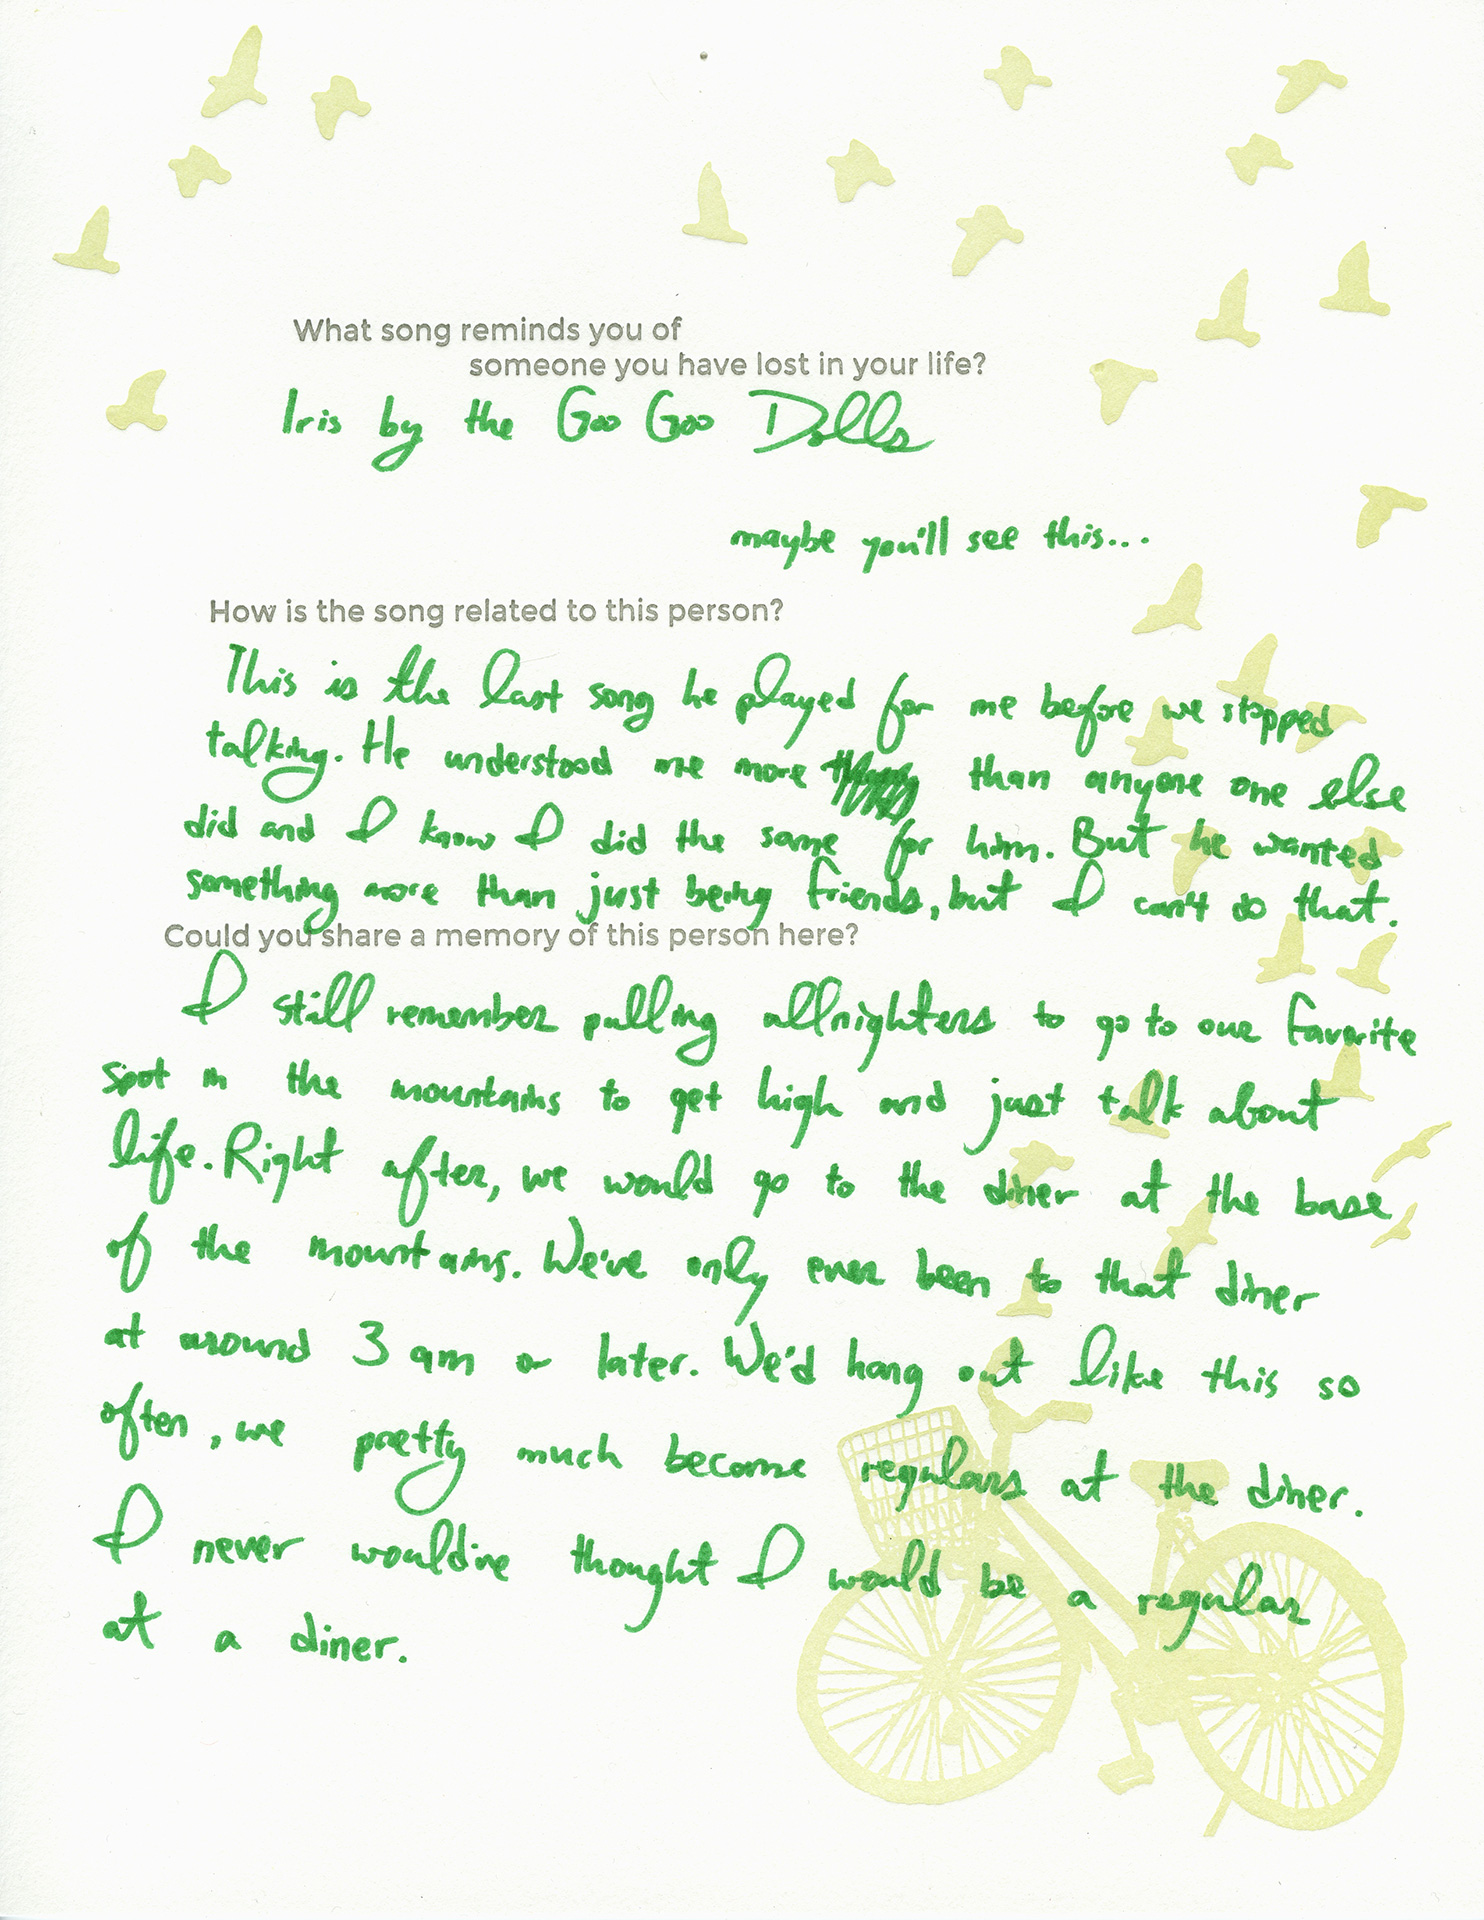 What song reminds you of
someone you have lost in your life?
Iris by the Goo Goo Dolls
maybe you'll see this...
How is the song related to this person?
This is the last song he played for me before we stopped
talking. He understood me more than anyone one else
did and I know I did the same for him. But he wanted
something more than just being friends, but I can't do that.
Could you share a memory of this person here?
I still remember pulling allnighters to go to our favorite
spot in the mountains to get high and just talk about
life. Right after, we would go to the diner at the base
of the mountains. We've only ever been to that diner
at around 3 am or later. We'd hang out like this so
often, we pretty much become regulars at the diner.
I never would've thought I would be a regular
at a diner.